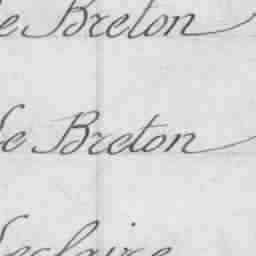 Le Breton
Le Breton
Leclaire